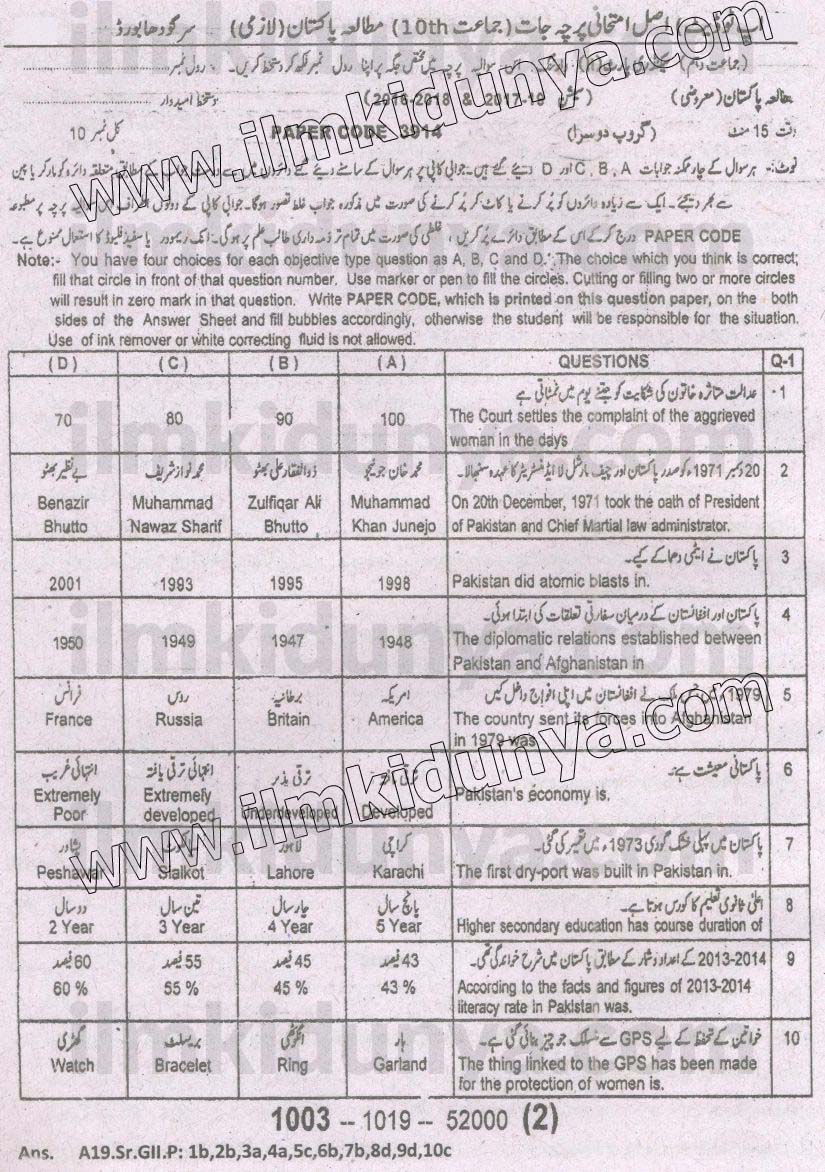 اصل امتحانی پرچہ جات (جماعت 10th) مطالعہ پاکستان (لازمی) سرگودھا بورڈ
(جماعت دہم) پرچہ میں مختص جگہ پر اپنا رول نمبر لکھ کر دستخط کریں۔ رول نمبر
مطالعہ پاکستان (معروضی) (سیشن 2016-2018 & 2017-19) دستخط امیدوار
وقت 15 منٹ (گروپ دوسرا) PAPER CODE 3914 کل نمبر 10
نوٹ:- ہر سوال کے چار ممکنہ جوابات A ، B ، C اور D دیئے گئے ہیں۔ جوابی کاپی پر ہر سوال کے سامنے دیئے گئے دائروں میں سے درست جواب کے مطابق متعلقہ دائرہ کو مارکر یا پین
سے بھر دیجئے۔ ایک سے زیادہ دائروں کو پُر کرنے یا کاٹ کر پُر کرنے کی صورت میں مذکورہ جواب غلط تصور ہوگا۔ جوابی کاپی کے دونوں اطراف اس سوالیہ پرچہ پر مطبوعہ
PAPER CODE درج کر کے اس کے مطابق دائرے پُر کریں ، غلطی کی صورت میں تمام تر ذمہ داری طالب علم پر ہوگی۔ انک ریموور یا سفید فلیوڈ کا استعمال ممنوع ہے۔
Note:- You have four choices for each objective type question as A, B, C and D. The choice which you think is correct;
fill that circle in front of that question number. Use marker or pen to fill the circles. Cutting or filling two or more circles
will result in zero mark in that question. Write PAPER CODE, which is printed on this question paper, on the both
sides of the Answer Sheet and fill bubbles accordingly, otherwise the student will be responsible for the situation.
Use of ink remover or white correcting fluid is not allowed.
(D) (C) (B) (A) QUESTIONS Q-1
عدالت متاثرہ خاتون کی شکایت کو جتنے یوم میں نمٹاتی ہے 1
70 80 90 100 The Court settles the complaint of the aggrieved
woman in the days
20 دسمبر 1971ء کو صدر پاکستان اور چیف مارشل لا ایڈمنسٹریٹر کا عہدہ سنبھالا۔ 2
محمد خان جونیجو ذوالفقار علی بھٹو محمد نواز شریف بے نظیر بھٹو
Benazir Muhammad Zulfiqar Ali Muhammad On 20th December, 1971 took the oath of President
Bhutto Nawaz Sharif Bhutto Khan Junejo of Pakistan and Chief Martial law administrator.
پاکستان نے ایٹمی دھماکے کیے۔ 3
2001 1993 1995 1998 Pakistan did atomic blasts in.
پاکستان اور افغانستان کے درمیان سفارتی تعلقات کی ابتدا ہوئی۔ 4
1950 1949 1947 1948 The diplomatic relations established between
Pakistan and Afghanistan in
1979ء میں جس ملک نے افغانستان میں اپنی افواج داخل کیں 5
امریکہ برطانیہ روس فرانس
France Russia Britain America The country sent its forces into Afghanistan
in 1979 was
پاکستانی معیشت ہے۔ 6
ترقی یافتہ ترقی پذیر انتہائی ترقی یافتہ انتہائی غریب
Extremely Extremely Underdeveloped Developed Pakistan's economy is.
Poor developed
پاکستان میں پہلی خشک گودی 1973ء میں تعمیر کی گئی۔ 7
کراچی لاہور سیالکوٹ پشاور
Peshawar Sialkot Lahore Karachi The first dry-port was built in Pakistan in.
اعلیٰ ثانوی تعلیم کا کورس ہوتا ہے۔ 8
پانچ سال چار سال تین سال دو سال
2 Year 3 Year 4 Year 5 Year Higher secondary education has course duration of
2013-2014 کے اعداد و شمار کے مطابق پاکستان میں شرح خواندگی تھی۔ 9
43 فیصد 45 فیصد 55 فیصد 60 فیصد
60 % 55 % 45 % 43 % According to the facts and figures of 2013-2014
literacy rate in Pakistan was.
خواتین کے تحفظ کے لیے GPS سے منسلک جو چیز بنائی گئی ہے۔ 10
ہار انگوٹھی بریسلٹ گھڑی
Watch Bracelet Ring Garland The thing linked to the GPS has been made
for the protection of women is.
1003 -- 1019 -- 52000 (2)
Ans. A19.Sr.GII.P: 1b,2b,3a,4a,5c,6b,7b,8d,9d,10c
www.ilmkidunya.com
www.ilmkidunya.com
ilmkidunya.com
ilmkidunya.com
ilmkidunya.com
ilmkidunya.com
ilmkidunya.com